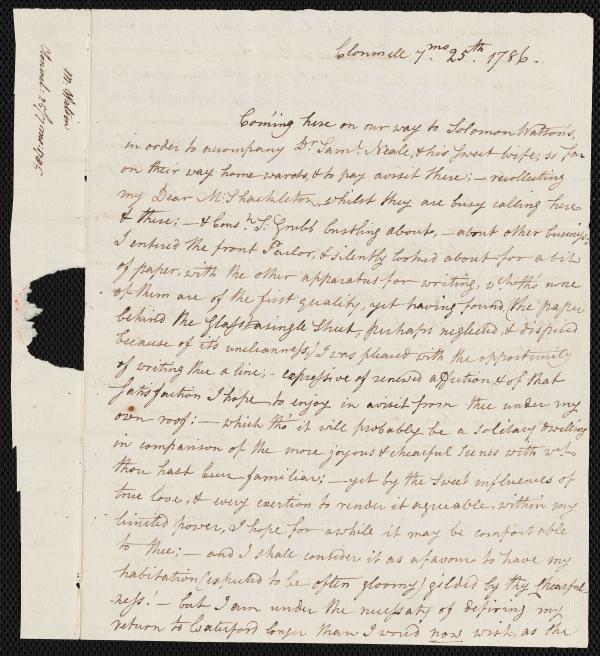 M. Watson
Clonmel: 25/7 mo: 1786
Clonmell 7mo. 25th. 1786.-
Coming here on our way to Solomon Watson's,
in order to accompany Dr. Saml. Neale, & his sweet wife, so far
on their way home wards, & to pay a visit there; - recollecting
my Dear M: Shackleton, whilst they are busy calling here
& there; - & Cons. S. Grubb bustling about, - about other business;
I entered the front Parlor, & silently looked about for a bit
of paper, with the other apparatus for writing, wch. tho' none
of them are of the first quality, yet having found (the paper
behind the Glass a single sheet, perhaps neglected, & despised
because of its uncleanness,) I was pleased with the opportunity
of writing thee a line; - expressive of renewed affection, & of that
satisfaction I hope to enjoy in a visit from thee under my
own roof: - which tho' it will probably be a solitary dwelling
in comparison of the more joyous & chearful scenes with wch.
thou hast been familiar; - yet by the sweet influences of
true love, & every exertion to render it agreeable, within my
limited power, I hope for awhile it may be comfortable
to thee; - and I shall consider it as a favour to have my
habitation (expected to be often gloomy) gilded by thy chearful
-ness! - but I am under the necessity of desiring my
return to Waterford longer than I would now wish, as the